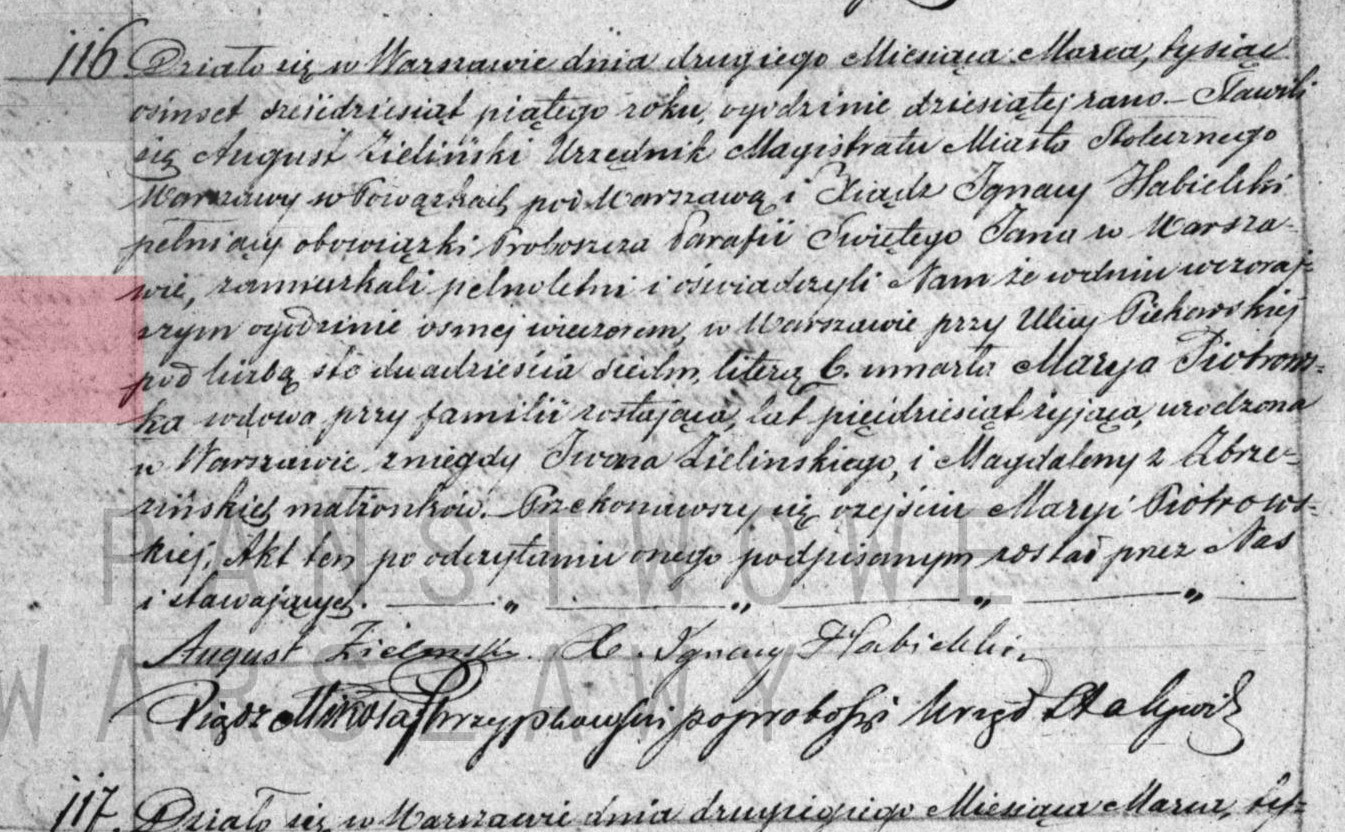 116 Działo się w Warszawie dnia drugiego Miesiąca Marca, tysiąc
ośmset sześćdziesiąt piątego roku, o godzinie dziesiątej rano – Stawili
się August Zieliński Urzędnik Magistratu Miasta Stołecznego
Warszawy w Powązkach pod Warszawą i Xiądz Ignacy Habielski
pełniący obowiązki Proboszcza Parafii Świętego Jana w Warsza-
wie, zamieszkali pełnoletni i oświadczyli Nam że w dniu wczoraj-
szym o godzinie osmej wieczorem, w Warszawie przy Ulicy Piekarskiej
pod liczbą sto dwadzieścia siedm, literą b. umarła Maryja Piotrows-
ka wdowa przy familii zostająca, lat pięćdziesiąt żyjąca, urodzona
w Warszawie z niegdy Jwona Zielinskiego, i Magdaleny z Zbrze-
zińskich małżonków. Przekonawszy się o zejściu Maryi Piotrows-
kiej, Akt ten po odczytaniu onego podpisanym został przez Nas
i stawających.
August Zielinski. X. Ignacy Habielski.
Xiądz Mikołaj Przypkowski Urzęd
117. Działo się w Warszawie dnia drugiego Miesiąca Marca, tys-
PAŃSTWOWE
WARSZAWY